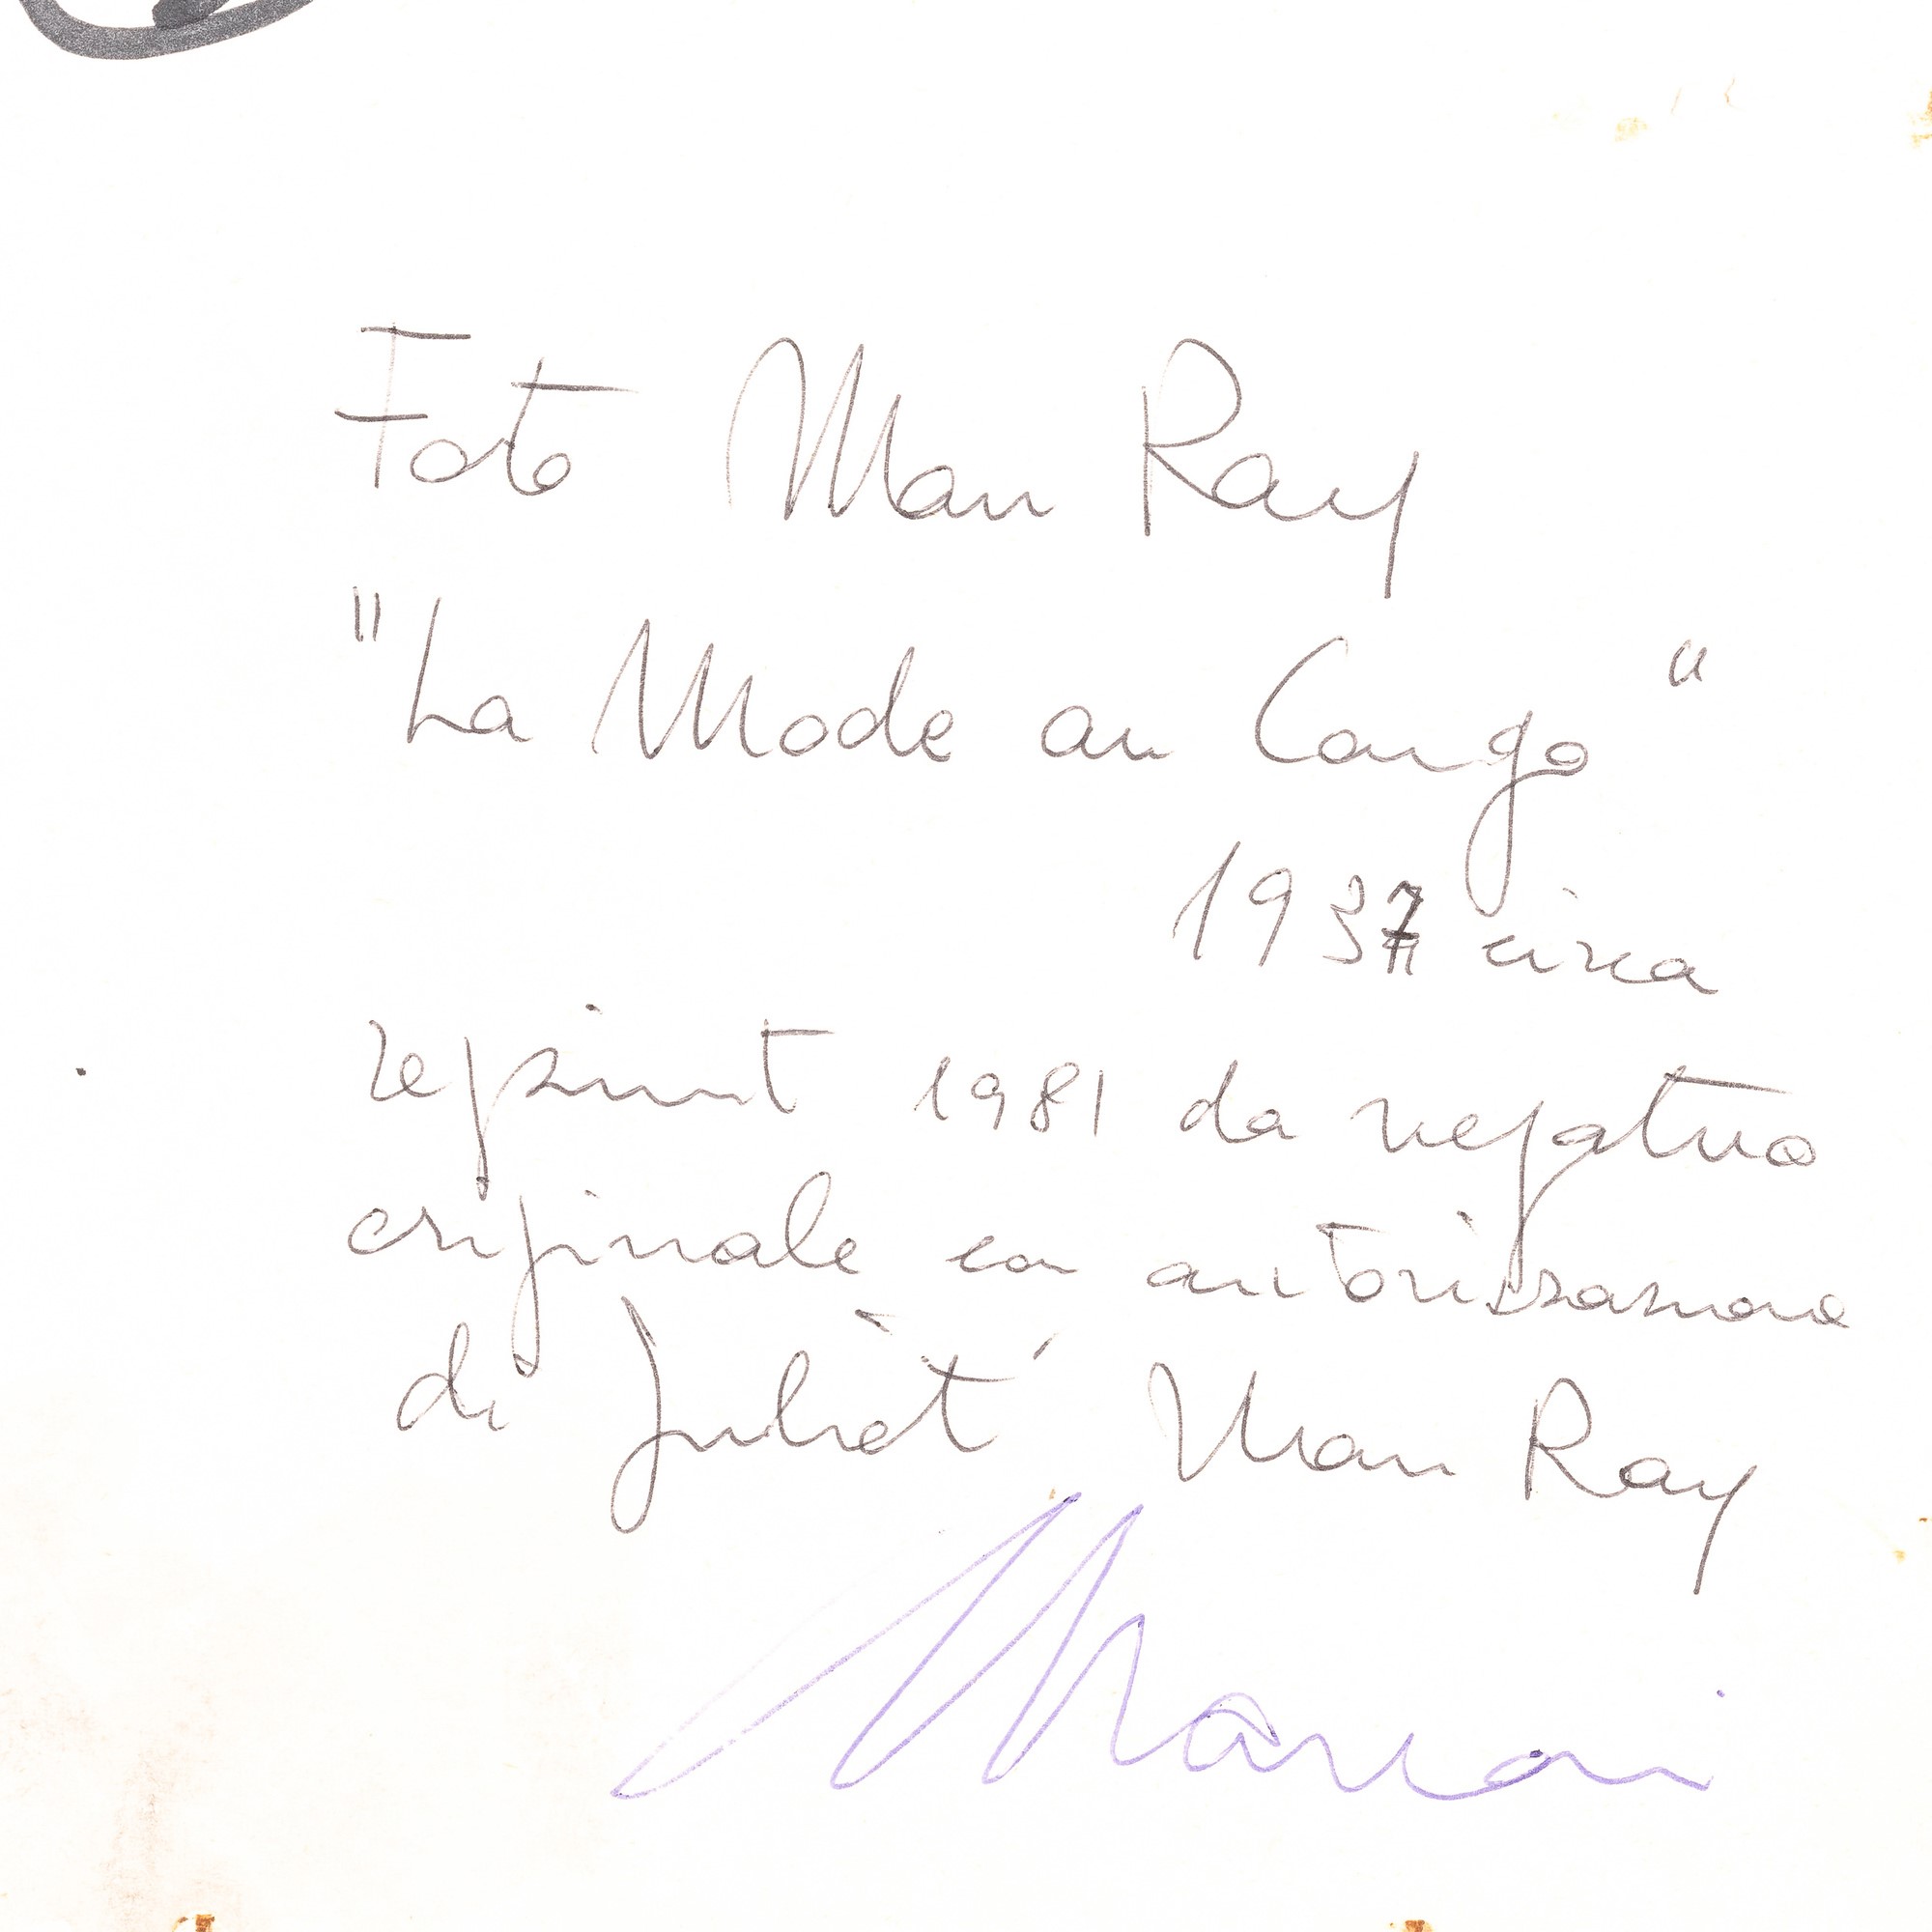 Foto Man Ray
"La Mode au Congo"
1937 circa
reprint 1981 da negativo
originale con autorizzazione
di Juliet Man Ray